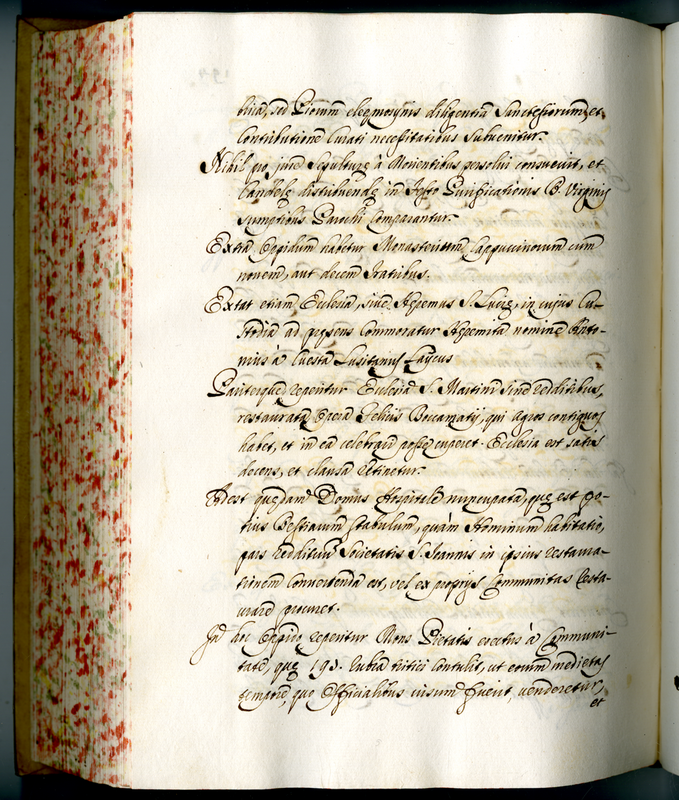 bus, sed Piorum eleemosynis diligentia Sanctesiorum, et
Contributione Curati necessitatibus subvenitur.
Nihil pro jure Sepulturę à Morientibus persolvi consuevit, et
Candelę distribuendę in festo Purificationis B. Virginis
sumptibus Parochi Comparantur.
Extra Oppidum habetur Monasterium Cappuccinorum cum
novem, aut decem fratribus.
Extat etiam Ecclesia, sive Heremus S. Lucię, in cujus Cu-
stodia ad pręsens Commoratur Heremita nomine Anto-
nius à Cuesta Lusitanus Laicus
Pariterque reperitur Ecclesia S. Martini sine redditibus,
restaurata opera Boccamatij, qui agros contiguos
habet, et in ea celebrari posse cuperet. Ecclesia est satis
decens, et clausa retinetur.
Adest quędam Domus Hospitale nuncupata, quę est po-
tius Bestiarum stabulum, quàm Hominum habitatio,
pars reddituum Societatis S. Joannis in ipsius restaura-
tionem Convertenda est, vel ex proprijs Communitas resta-
urare procuret.
In hoc Oppido reperitur Mons Pietatis erectus à Communi-
tate, quę 193. rubia tritici Contulit, ut eorum medietas
tempore, quo Officialibus visum fuerit, venderetur,
et